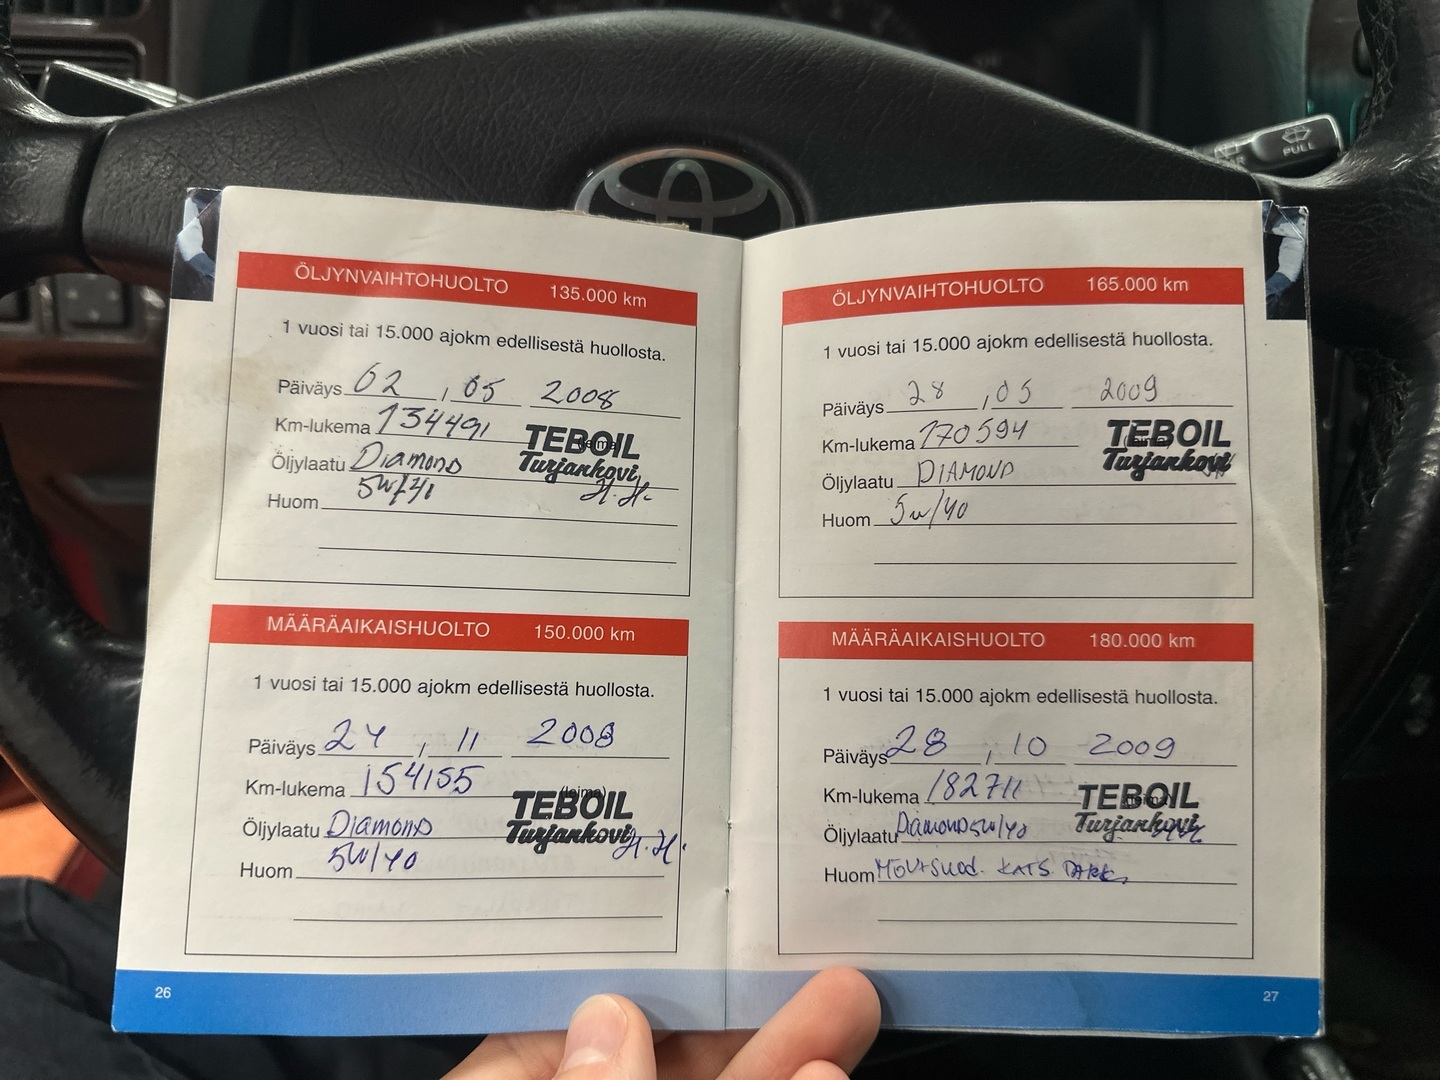 PULL
ÖLJYNVAIHTOHUOLTO 135.000 km
1 vuosi tai 15.000 ajokm edellisestä huollosta.
Päiväys 02 , 05 2008
Km-lukema 134491
TEBOIL
Öljylaatu Diamond
Turjankovi
5w/41
H.H.
Huom
MÄÄRÄAIKAISHUOLTO 150.000 km
1 vuosi tai 15.000 ajokm edellisestä huollosta.
Päiväys 24 , 11 2008
Km-lukema 154155
(leima)
TEBOIL
Öljylaatu Diamond
Turjankovi
H.H.
5W/40
Huom
26
ÖLJYNVAIHTOHUOLTO 165.000 km
1 vuosi tai 15.000 ajokm edellisestä huollosta.
Päiväys 28 , 05 2009
Km-lukema 170594
TEBOIL
Turjankovi
Öljylaatu DIAMOND
Huom 5w/40
MÄÄRÄAIKAISHUOLTO 180.000 km
1 vuosi tai 15.000 ajokm edellisestä huollosta.
Päiväys 28 , 10 2009
Km-lukema 182711
TEBOIL
Turjankovi
Öljylaatu Diamond 5W/40
Huom KATS.
27